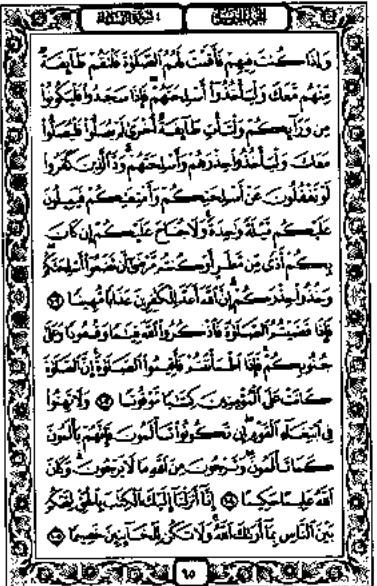 الجزء الخامس سورة النساء
وَإِذَا كُنتَ فِيهِمْ فَأَقَمْتَ لَهُمُ ٱلصَّلَوٰةَ فَلْتَقُمْ طَآئِفَةٌ
مِّنْهُم مَّعَكَ وَلْيَأْخُذُوٓا۟ أَسْلِحَتَهُمْ فَإِذَا سَجَدُوا۟ فَلْيَكُونُوا۟
مِن وَرَآئِكُمْ وَلْتَأْتِ طَآئِفَةٌ أُخْرَىٰ لَمْ يُصَلُّوا۟ فَلْيُصَلُّوا۟
مَعَكَ وَلْيَأْخُذُوا۟ حِذْرَهُمْ وَأَسْلِحَتَهُمْ ۗ وَدَّ ٱلَّذِينَ كَفَرُوا۟
لَوْ تَغْفُلُونَ عَنْ أَسْلِحَتِكُمْ وَأَمْتِعَتِكُمْ فَيَمِيلُونَ
عَلَيْكُم مَّيْلَةً وَٰحِدَةً ۚ وَلَا جُنَاحَ عَلَيْكُمْ إِن كَانَ
بِكُمْ أَذًى مِّن مَّطَرٍ أَوْ كُنتُم مَّرْضَىٰٓ أَن تَضَعُوٓا۟ أَسْلِحَتَكُمْ
وَخُذُوا۟ حِذْرَكُمْ ۗ إِنَّ ٱللَّهَ أَعَدَّ لِلْكَٰفِرِينَ عَذَابًا مُّهِينًا ١٠٢
فَإِذَا قَضَيْتُمُ ٱلصَّلَوٰةَ فَٱذْكُرُوا۟ ٱللَّهَ قِيَٰمًا وَقُعُودًا وَعَلَىٰ
جُنُوبِكُمْ ۚ فَإِذَا ٱطْمَأْنَنتُمْ فَأَقِيمُوا۟ ٱلصَّلَوٰةَ ۚ إِنَّ ٱلصَّلَوٰةَ
كَانَتْ عَلَى ٱلْمُؤْمِنِينَ كِتَٰبًا مَّوْقُوتًا ١٠٣ وَلَا تَهِنُوا۟
فِى ٱبْتِغَآءِ ٱلْقَوْمِ ۖ إِن تَكُونُوا۟ تَأْلَمُونَ فَإِنَّهُمْ يَأْلَمُونَ
كَمَا تَأْلَمُونَ ۖ وَتَرْجُونَ مِنَ ٱللَّهِ مَا لَا يَرْجُونَ ۗ وَكَانَ
ٱللَّهُ عَلِيمًا حَكِيمًا ١٠٤ إِنَّآ أَنزَلْنَآ إِلَيْكَ ٱلْكِتَٰبَ بِٱلْحَقِّ لِتَحْكُمَ
بَيْنَ ٱلنَّاسِ بِمَآ أَرَىٰكَ ٱللَّهُ ۚ وَلَا تَكُن لِّلْخَآئِنِينَ خَصِيمًا ١٠٥
٩٥